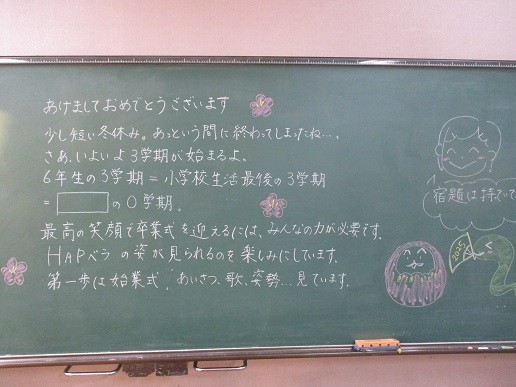 あけましておめでとうございます
少し短い冬休み。あっという間に終わってしまったね…。
さあ、いよいよ3学期が始まるよ。
6年生の3学期＝小学校生活最後の3学期
＝ の0学期。
最高の笑顔で卒業式を迎えるには、みんなの力が必要です。
HAPベラの姿が見られるのを楽しみにしています。
第一歩は始業式。あいさつ、歌、姿勢…見ています。
宿題は持って
2025